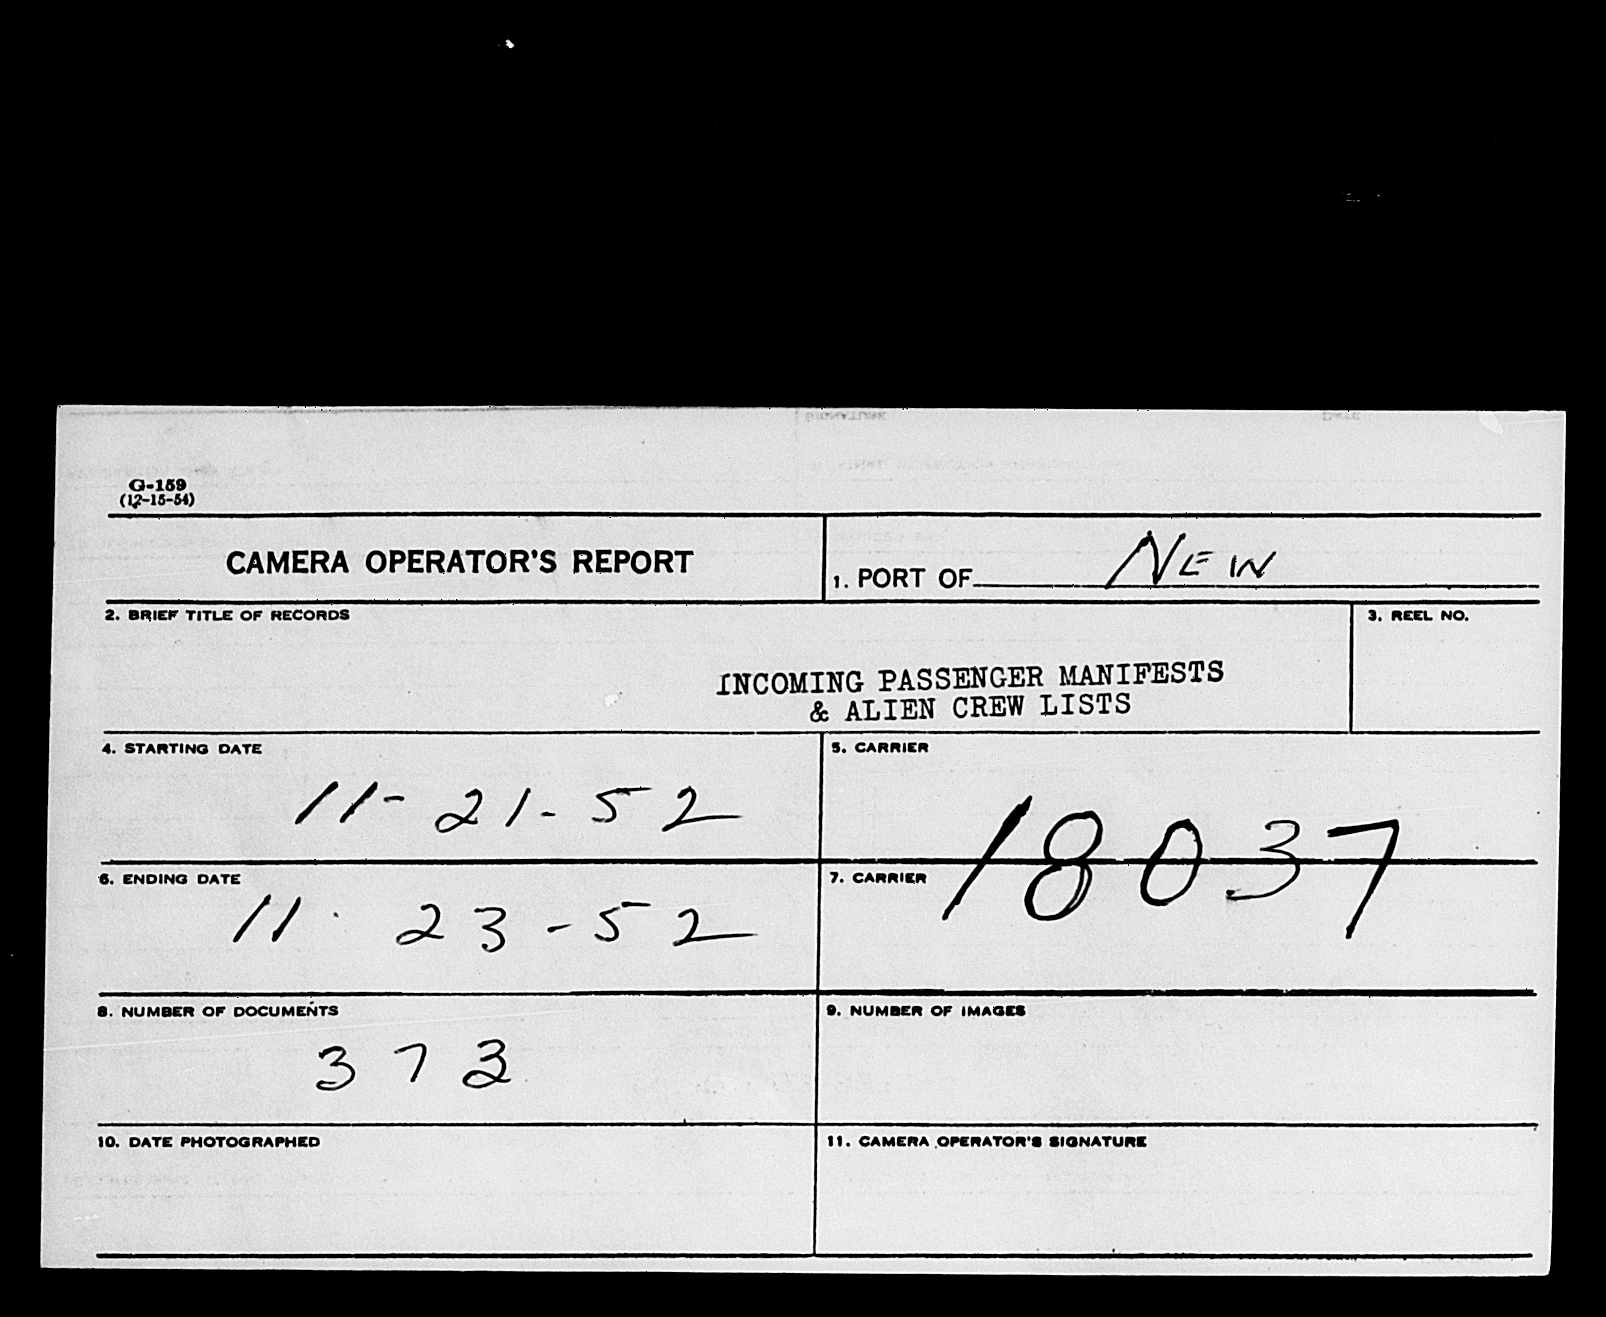 G-159
(12-15-54)
CAMERA OPERATOR'S REPORT
1. PORT OF NEW
2. BRIEF TITLE OF RECORDS
3. REEL NO.
INCOMING PASSENGER MANIFESTS
& ALIEN CREW LISTS
4. STARTING DATE
11-21-52
5. CARRIER
18037
6. ENDING DATE
11-23-52
7. CARRIER
8. NUMBER OF DOCUMENTS
373
9. NUMBER OF IMAGES
10. DATE PHOTOGRAPHED
11. CAMERA OPERATOR'S SIGNATURE